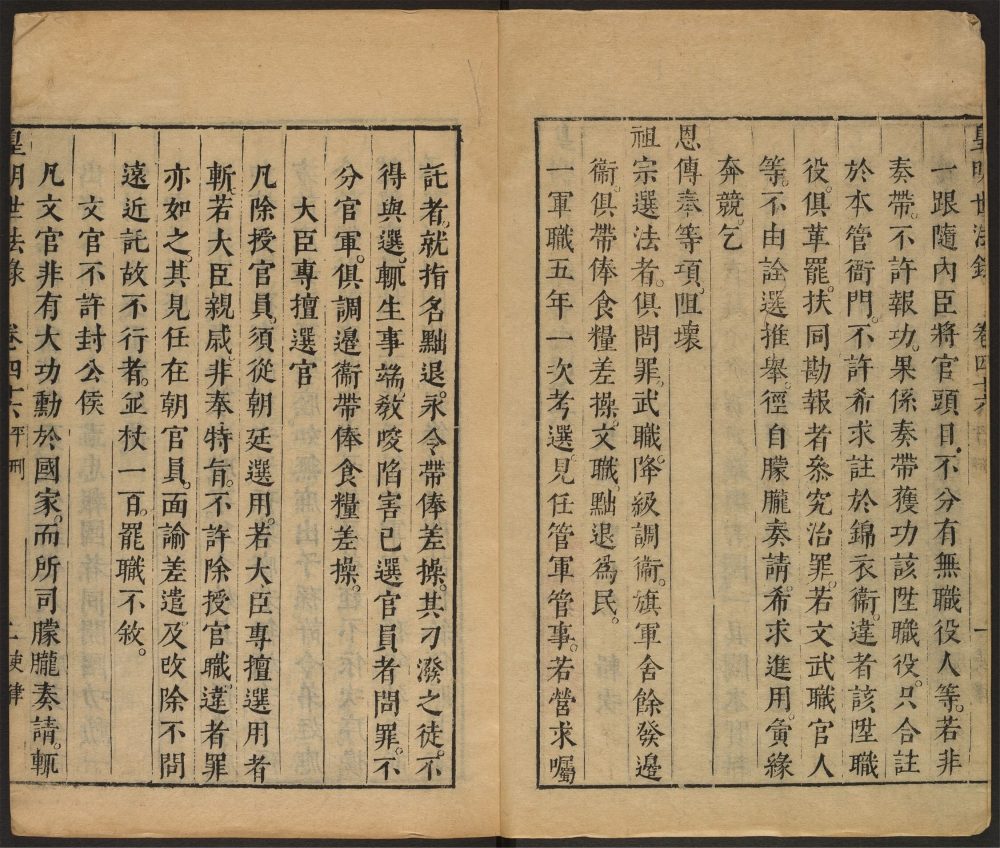 一跟隨內臣將官頭目不分有無職役人等若非
奏帶不許報功果係奏帶獲功該陞職役只合註
於本管衙門不許希求註於錦衣衞違者該陞職
役俱革罷扶同勘報者叅究治罪若文武職官人
等不由詮選推舉徑自朦朧奏請希求進用夤緣
奔競乞
恩傳奉等項阻壞
祖宗選法者俱問罪武職降級調衞旗軍舍餘發邊
衞俱帶俸食糧差操文職黜退爲民
一軍職五年一次考選見任管軍管事若營求囑
皇明世法錄 卷四十六
託者就指名黜退永令帶俸差操其刁潑之徒不
得與選輒生事端敎唆陷害已選官員者問罪不
分官軍俱調邊衞帶俸食糧差操
大臣專擅選官
凡除授官員須從朝廷選用若大臣專擅選用者
斬若大臣親戚非奉特旨不許除授官職違者罪
亦如之其見任在朝官員面諭差遣及改除不問
遠近託故不行者並杖一百罷職不敘
文官不許封公侯
凡文官非有大功勳於國家而所司朦朧奏請輒
皇明世法錄 卷四十六 平刑 二 吏律